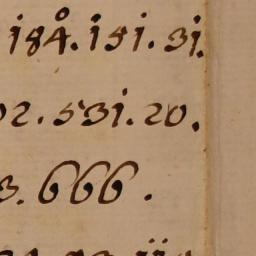 184. 151. 31.
02. 531. 20.
3. 666.